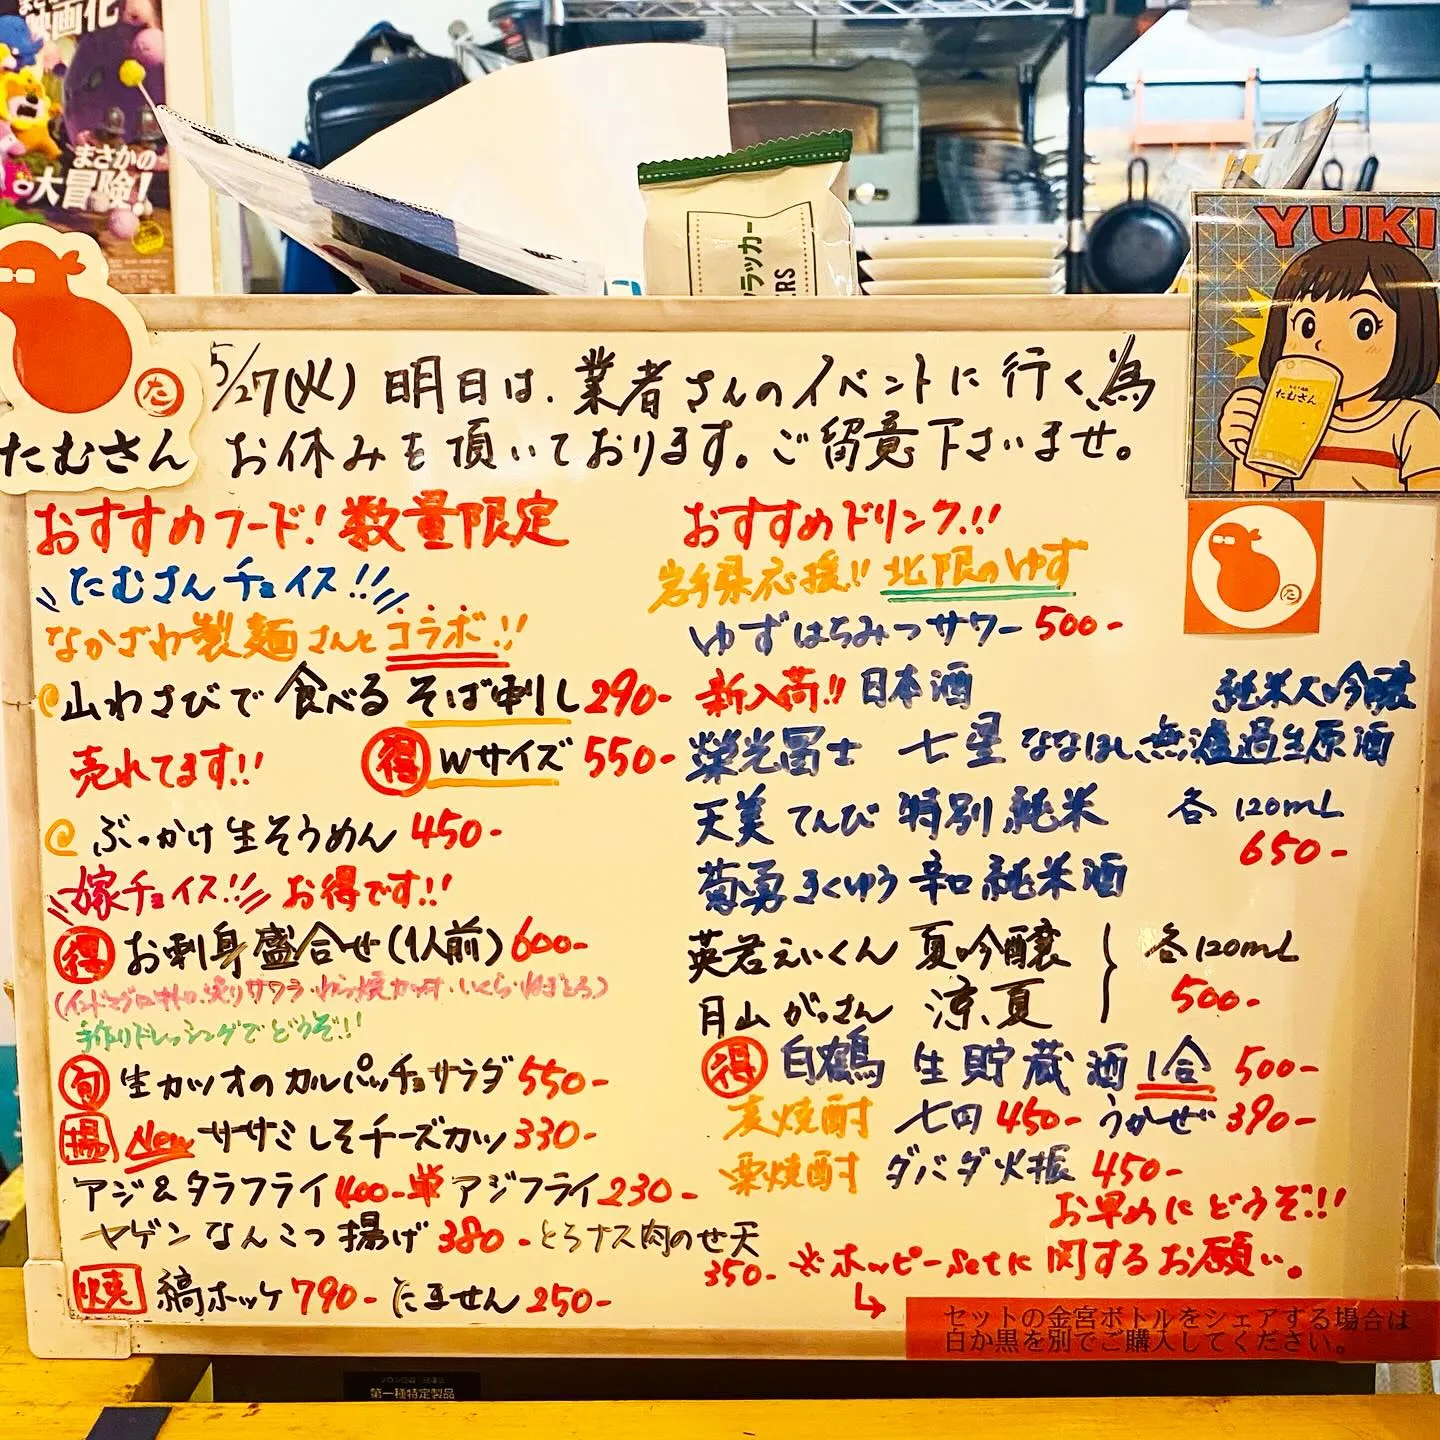 映画化
まさかの
大冒険!
ラッカー
ERS
YUKI
たむさん
た
たむさん
5/27(火) 明日は、業者さんのイベントに行く為
お休みを頂いております。ご留意下さいませ。
おすすめフード!数量限定
たむさんチョイス!!
なかざわ製麺さんとコラボ!!
@山わさびで食べるそば刺し290-
売れてます!! 得 Wサイズ 550-
@ぶっかけ生そうめん 450-
嫁チョイス!! お得です!!
得 お刺身盛合せ(1人前)600-
手作りドレッシングでどうぞ!!
旬 生カツオのカルパッチョサラダ 550-
揚 New ササミしそチーズカツ 330-
アジ&タラフライ 400- 単 アジフライ 230-
ヤゲンなんこつ揚げ 380- とろナス肉のせ天
350-
焼 縞ホッケ 790- たません 250-
おすすめドリンク!!
岩手県応援!! 北限のゆず
ゆずはちみつサワー 500-
新入荷!! 日本酒 純米大吟醸
榮光冨士 七星 ななほし 無濾過生原酒
天美 てんび 特別純米 各120mL
650-
菊勇 きくゆう 辛口純米酒
英君 えいくん 夏吟醸 各120mL
月山 がっさん 涼夏 500-
得 白鶴 生貯蔵酒 1合 500-
麦焼酎 七田 450- うかぜ 390-
栗焼酎 ダバダ火振 450-
お早めにどうぞ!!
※ホッピーsetに関するお願い。
セットの金宮ボトルをシェアする場合は
白か黒を別でご購入してください。
た
第一種特定製品